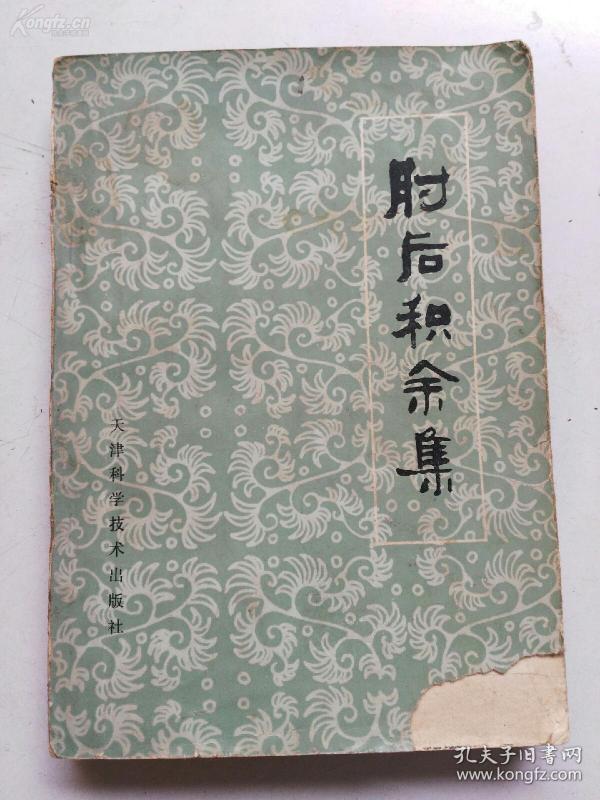 Kongfz.cn
肘后积余集
天津科学技术出版社
孔夫子旧书网
www.kongfz.com